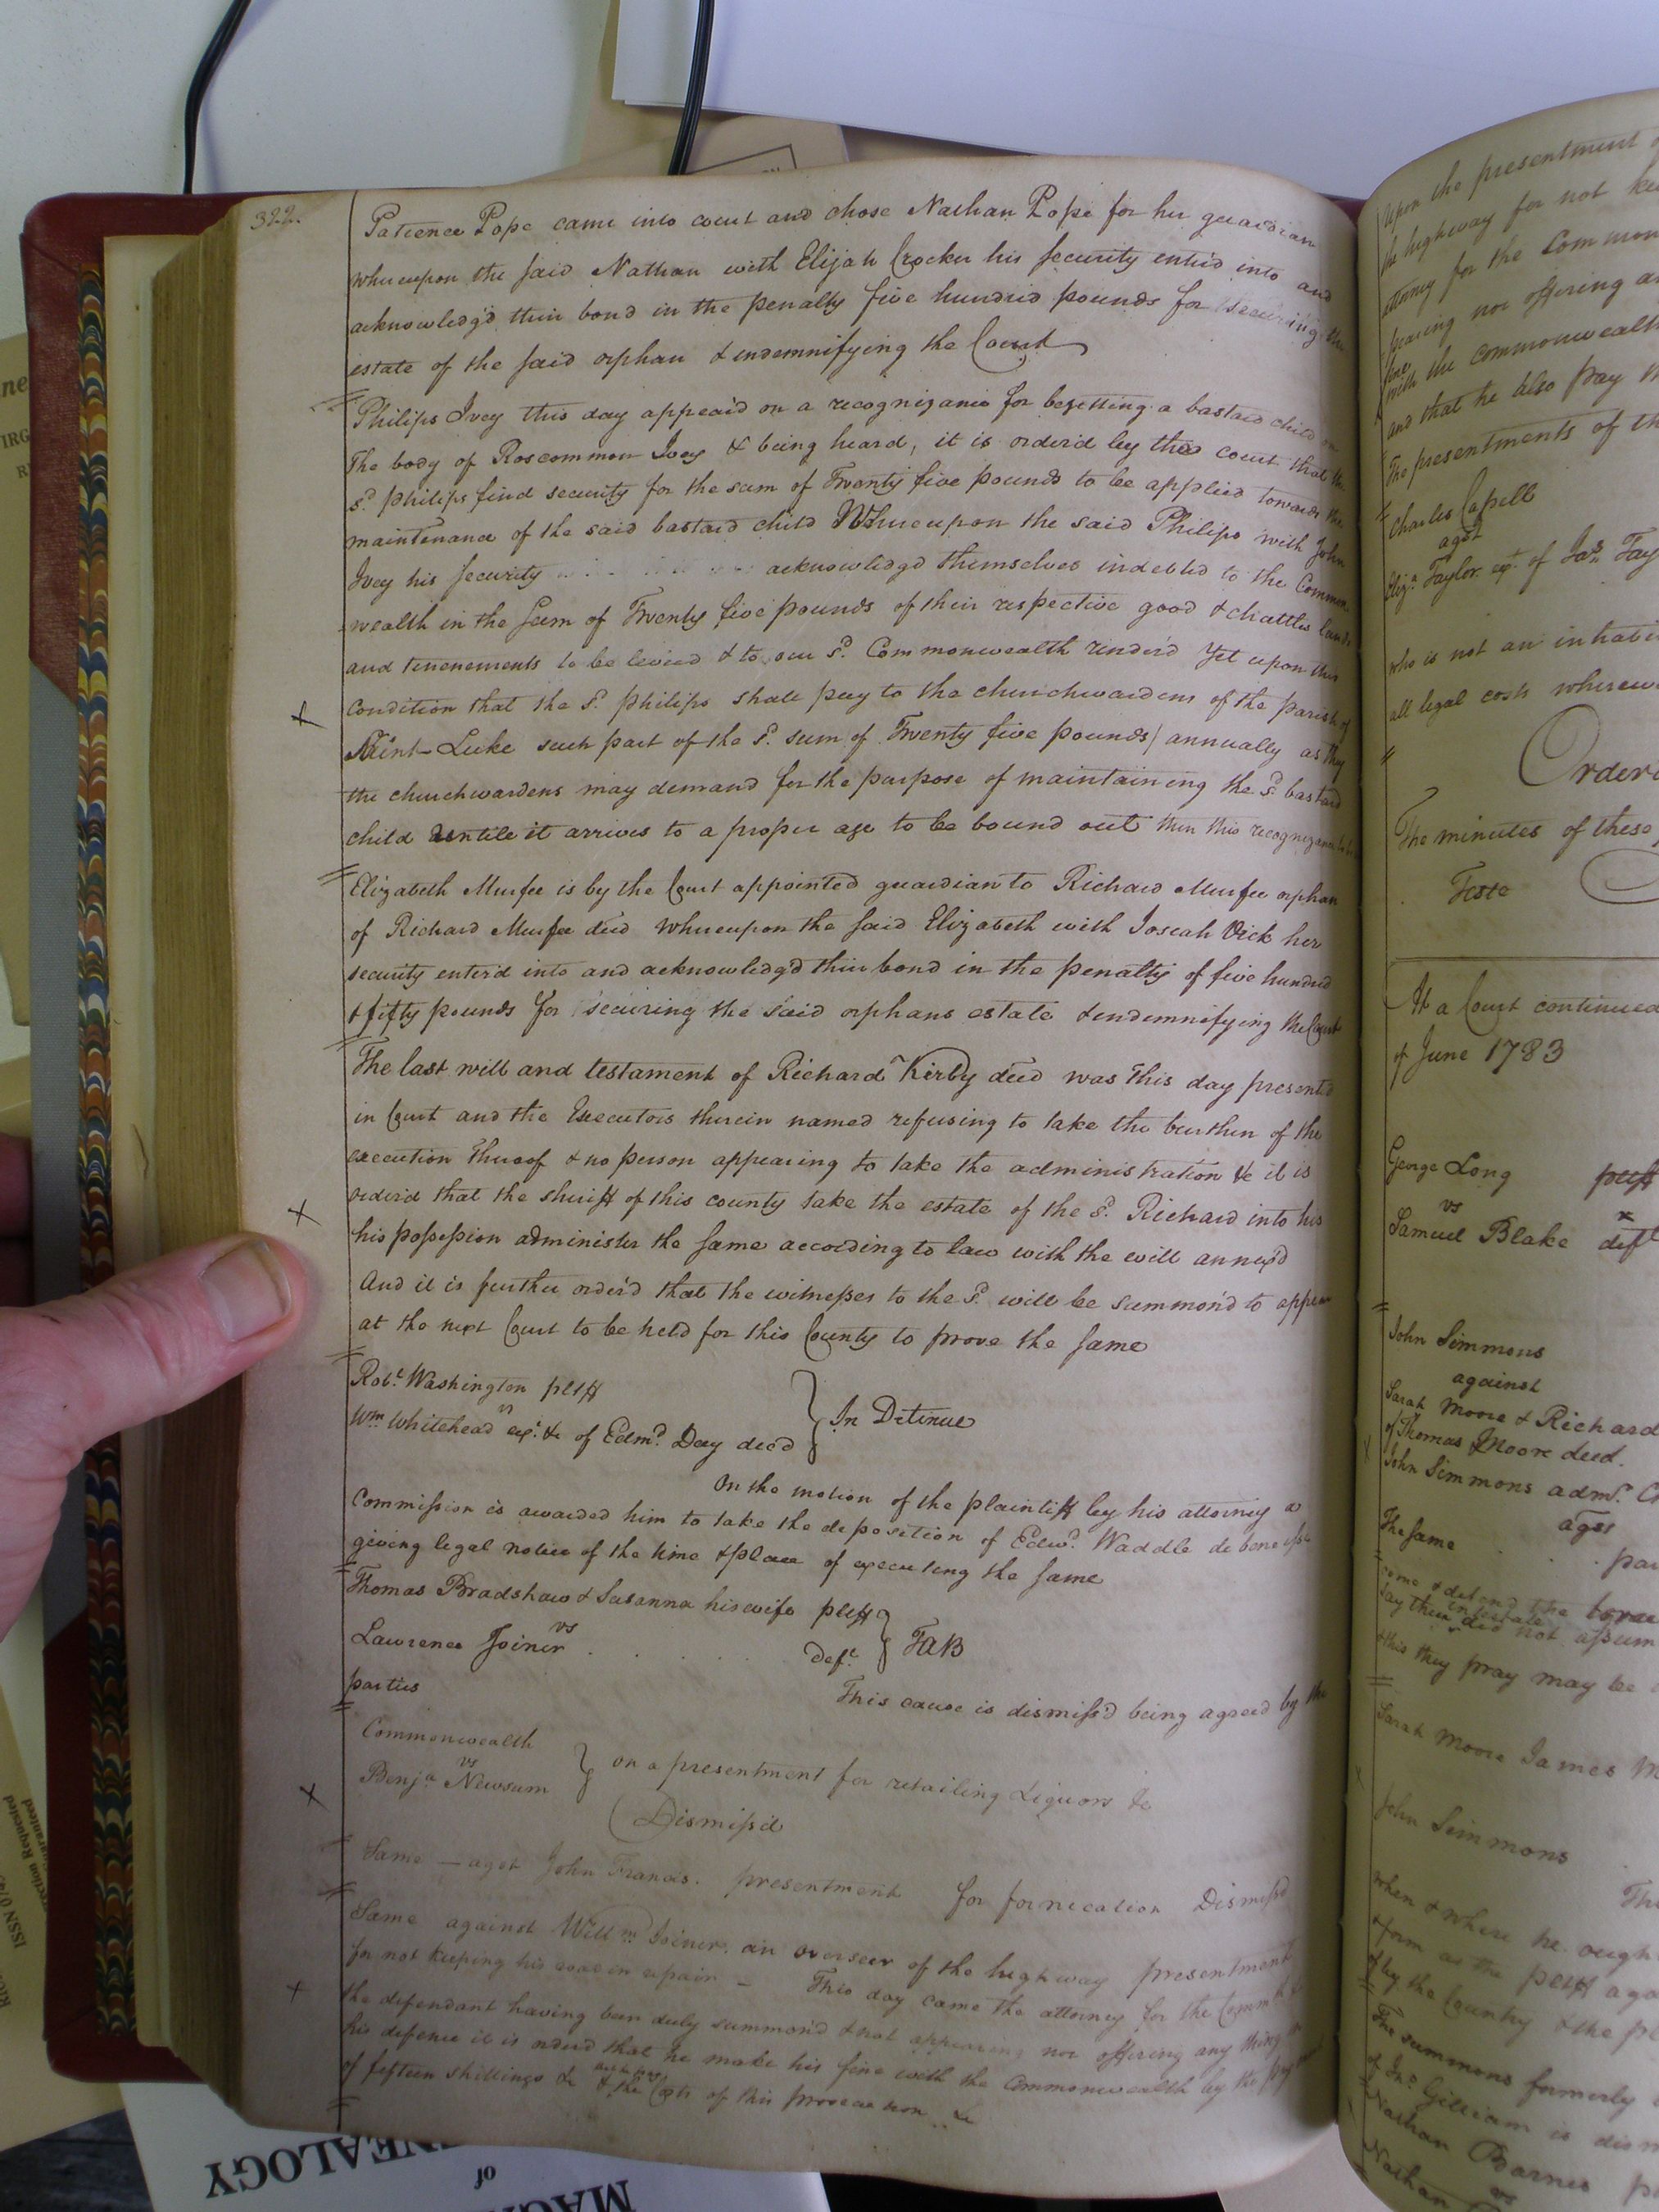 322.
Patience Pope came into court and chose Nathan Pope for her guardian
whereupon the said Nathan with Elijah Crocker his security enter'd into and
acknowledg'd their bond in the penalty five hundred pounds for securing the
estate of the said orphan & indemnifying the Court
Philips Ivey this day appear'd on a recognizance for begetting a bastard child on
The body of Roscommon Ivey & being heard, it is order'd by this court that the
sd. philips find security for the sum of Twenty five pounds to be applied towards the
maintenance of the said bastard child Whereupon the said Philips with John
Ivey his security acknowledgd themselves indebted to the Common
wealth in the sum of Twenty five pounds of their respective good & chattles lands
and tenenements to be levied & to our sd. Commonwealth render'd Yet upon this
condition that the sd. philips shall pay to the churchwardens of the parish of
Saint-Luke such part of the sd. sum of Twenty five pounds annually as they
the churchwardens may demand for the purpose of maintaineng the sd bastard
child untile it arrives to a proper age to be bound out then this recognizance
Elizabeth Murfee is by the Court appointed guardian to Richard Murfee orphan
of Richard Murfee decd Whereupon the said Elizabeth with Joseah Vick her
security enter'd into and acknowledg'd their bond in the penalty of five hundred
& fifty pounds for securing the said orphans estate & indemnifying the Court
The last will and testament of Richard Kirby decd was this day presented
in Court and the Executors therein named refusing to take the burthen of the
execution thereof & no person appearing to take the administration &c it is
order'd that the sheriff of this county take the estate of the sd. Richard into his
his possession administer the same according to law with the will annex'd
And it is further order'd that the witnesses to the sd. will be summon'd to appear
at the next Court to be held for this County to prove the same
Robt. Washington pltff
vs
Wm Whitehead exr. &c of Edmd. Day decd
In Detinue
On the motion of the plaintiff by his attorney a
Commission is awarded him to take the deposition of Edwd. Waddle de bene esse
giving legal notice of the time & place of executeng the same
Thomas Bradshaw & Susanna his wife pltff
vs
Lawrence Joiner Deft.
TAB
This cause is dismiss'd being agreed by the
parties
Commonwealth
vs
Benja. Newsum
on a presentment for retailing Liquors &c
Dismiss'd
Same — agst John Francis. presentment for fornecation Dismiss'd
Same against Willm Joiner an overseer of the highway presentment
for not keeping his road in repair - This day came the attorney for the Commth &
the defendant having been duly summon'd & not appearing nor offering any thing in
his defence it is order'd that he make his fine with the Commonwealth by the payment
of fifteen shillings &c & the Costs of this prosecution &c
Upon the presentment
the highway for not
attorney for the Common
pearing nor offering
fine
with the commonwealth
and that he also pay
The presentments of th
Charles Capell
agst
Eliza. Taylor ex. of Jas. Tay
who is not an inhabi
all legal costs wherew
Order
The minutes of these
Teste
At a Court continued
of June 1783
George Long pltff
vs
Samuel Blake deft
John Simmons
against
Sarah Moore & Richard
of Thomas Moore decd.
John Simmons admr.
The same agst
come & defend the
say their intestate did not assum
& this they pray may be
Sarah Moore James M
John Simmons
when & where he ough
& form as the pltff aga
by the Country & the pl
The summons formerly
of Jno. Gilliam is dism
Nathan Barnes
vs
Nathan
GENEALOGY
of
MAG
ISSN
Guaranteed
ction Requested